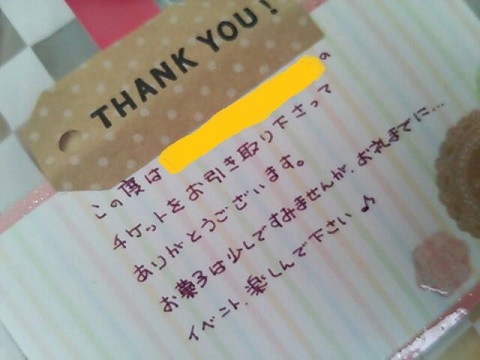 THANK YOU!
この度は の
チケットをお引き取り下さって
ありがとうございます。
お菓子は少しですみませんが、お礼までに...
イベント、楽しんで下さい♪